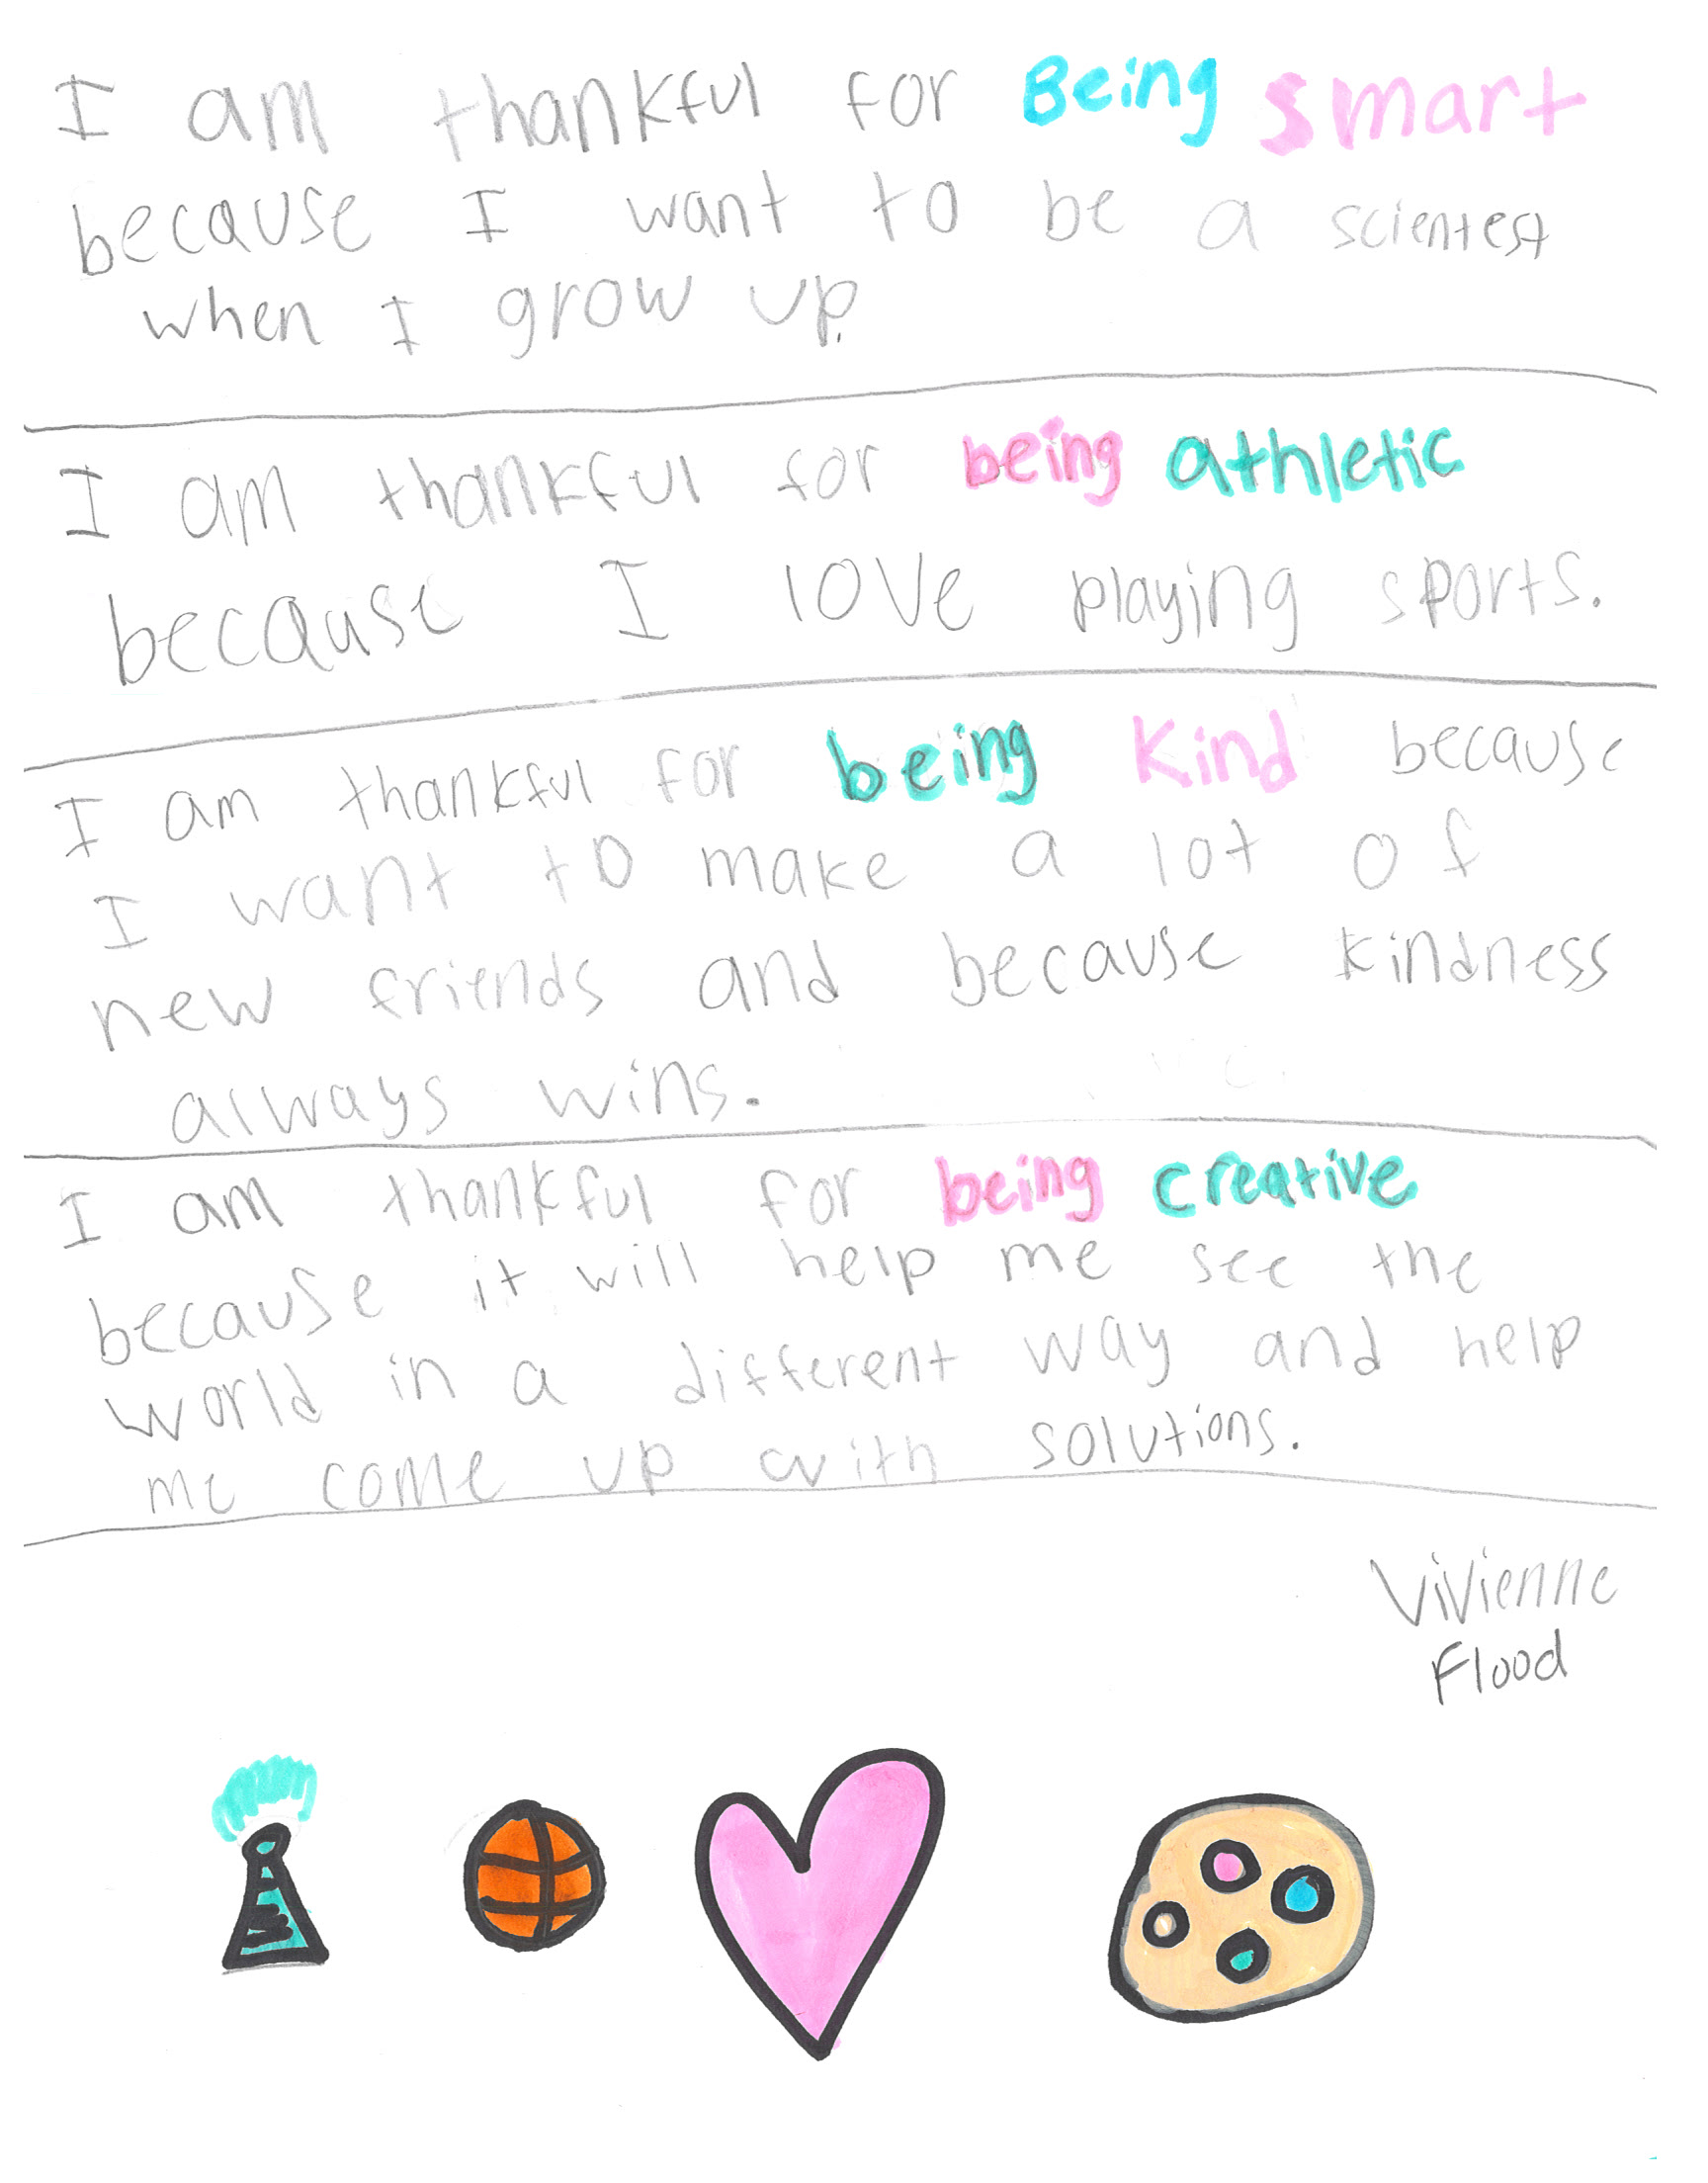 I am thankful for Being smart
because I want to be a scientest
when I grow up.
I am thankful for being athletic
because I love playing sports.
I am thankful for being kind because
I want to make a lot of
new friends and because kindness
always wins.
I am thankful for being creative
because it will help me see the
world in a different way and help
me come up with solutions.
Vivienne
Flood